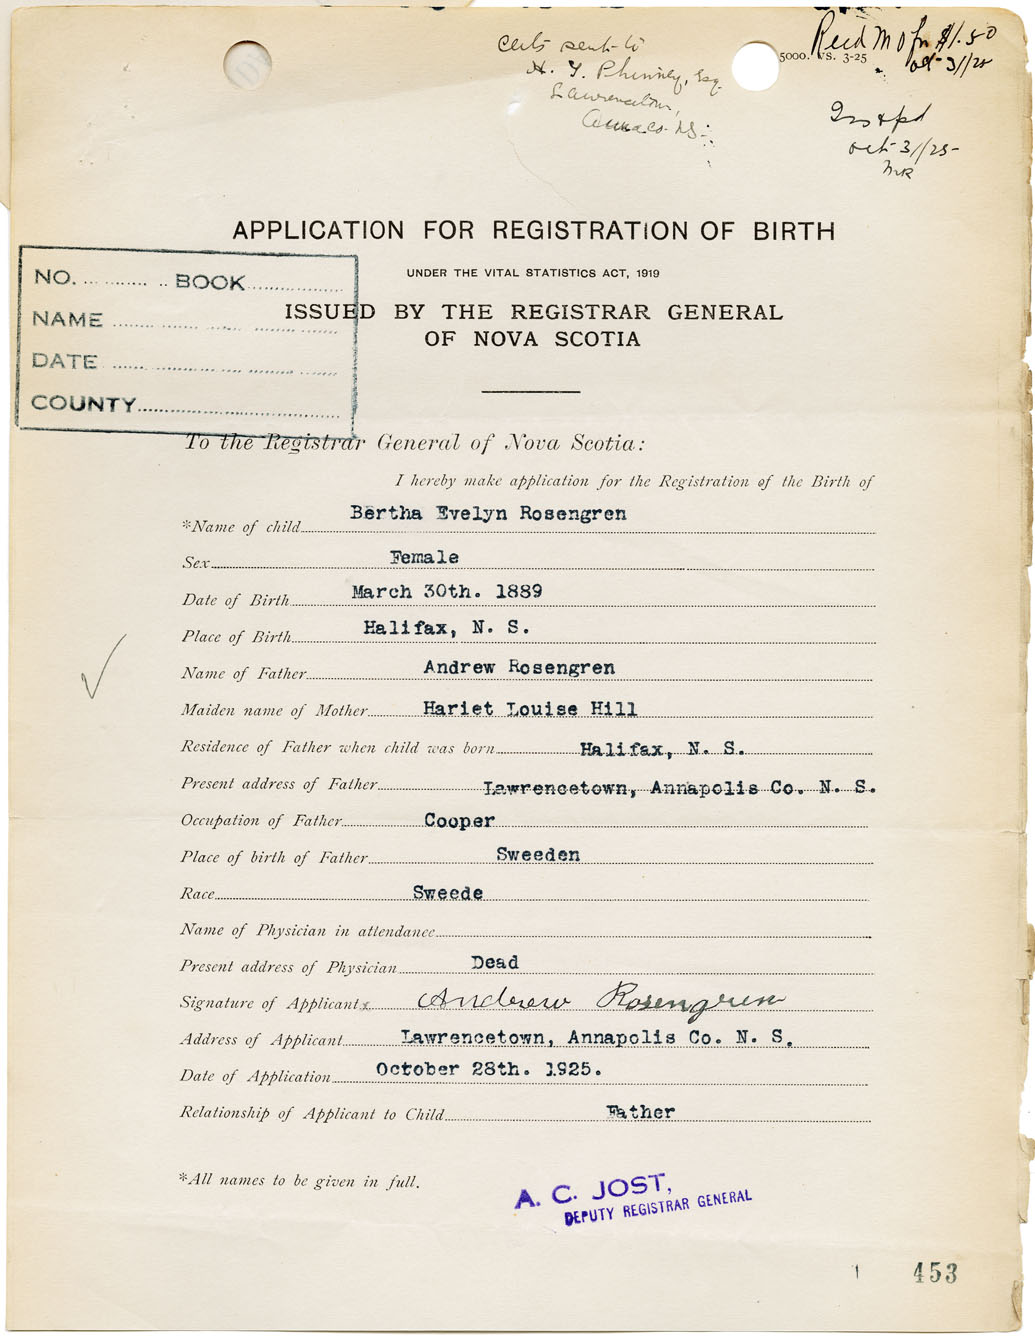 certs sent to
H. Y. Phinney, Esq.
Lawrencetown,
Anna. co. N.S.
5000. VS. 3-25
Recd M O for $1.50
oct 31/25
oct 31/25
MR
APPLICATION FOR REGISTRATION OF BIRTH
UNDER THE VITAL STATISTICS ACT, 1919
ISSUED BY THE REGISTRAR GENERAL
OF NOVA SCOTIA
NO. BOOK
NAME
DATE
COUNTY
To the Registrar General of Nova Scotia:
I hereby make application for the Registration of the Birth of
*Name of child Bertha Evelyn Rosengren
Sex Female
Date of Birth March 30th. 1889
Place of Birth Halifax, N. S.
Name of Father Andrew Rosengren
Maiden name of Mother Hariet Louise Hill
Residence of Father when child was born Halifax, N. S.
Present address of Father Lawrencetown, Annapolis Co. N. S.
Occupation of Father Cooper
Place of birth of Father Sweeden
Race Sweede
Name of Physician in attendance
Present address of Physician Dead
Signature of Applicant x Andrew Rosengren
Address of Applicant Lawrencetown, Annapolis Co. N. S.
Date of Application October 28th. 1925.
Relationship of Applicant to Child Father
*All names to be given in full.
A. C. JOST,
DEPUTY REGISTRAR GENERAL
453